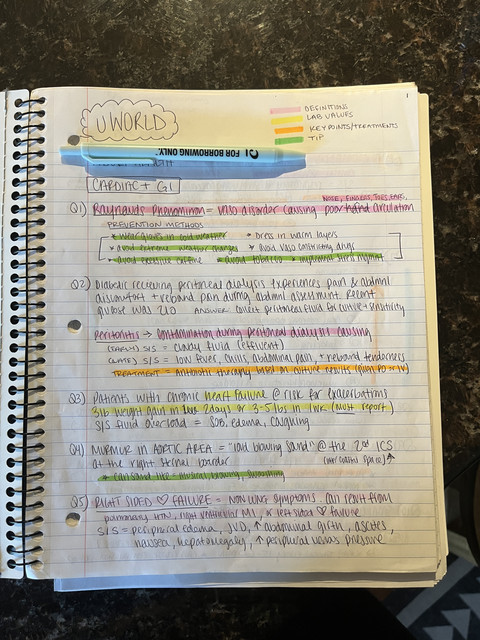 1
UWORLD
DEFINITIONS
LAB VALUES
KEY POINTS/TREATMENTS
TIP
FOR BORROWING ONLY.
CARDIAC + GI
NOSE, FINGERS, TOES, EARS
Q1) Raynauds Phenominon = vaso disorder causing poor circulation
PREVENTION METHODS
* wear gloves in cold weather * Dress in warm layers
* avoid extreme weather changes * avoid vaso constricting drugs
* avoid excessive caffeine * avoid tobacco * implement stress mgmt
Q2) Diabetic receiving peritoneal dialysis experiences pain & abdmnl
discomfort + rebound pain during abdmnl assessment. Recent
glucose was 210 ANSWER: collect peritoneal fluid for culture + sensitivity
Peritonitis → contamination during peritoneal dialysis causing
(EARLY) S/S = cloudy fluid (effluent)
(LATE) S/S = low fever, chills, abdominal pain, * rebound tenderness
TREATMENT = Antibiotic therapy based on culture results (given PO or IV)
Q3) Patients with chronic heart failure @ risk for exacerbations
3lb weight gain in 2days or 3-5 lbs in 1wk. (must report)
S/S fluid overload = SOB, edema, coughing
Q4) MURMUR IN AORTIC AREA = "loud blowing sound" @ the 2nd ICS
at the right sternal boarder (intercostal space)↑
* can sound like musical, blowing, swooshing
Q5) RIGHT SIDED ♡ FAILURE = NON lung symptoms. can result from
pulmonary HTN, right ventricular MI, or left sided ♡ failure
S/S = peripheral edema, JVD, ↑ abdominal girth, ascites,
nausea, hepatomegaly, ↑ peripheral venous pressure